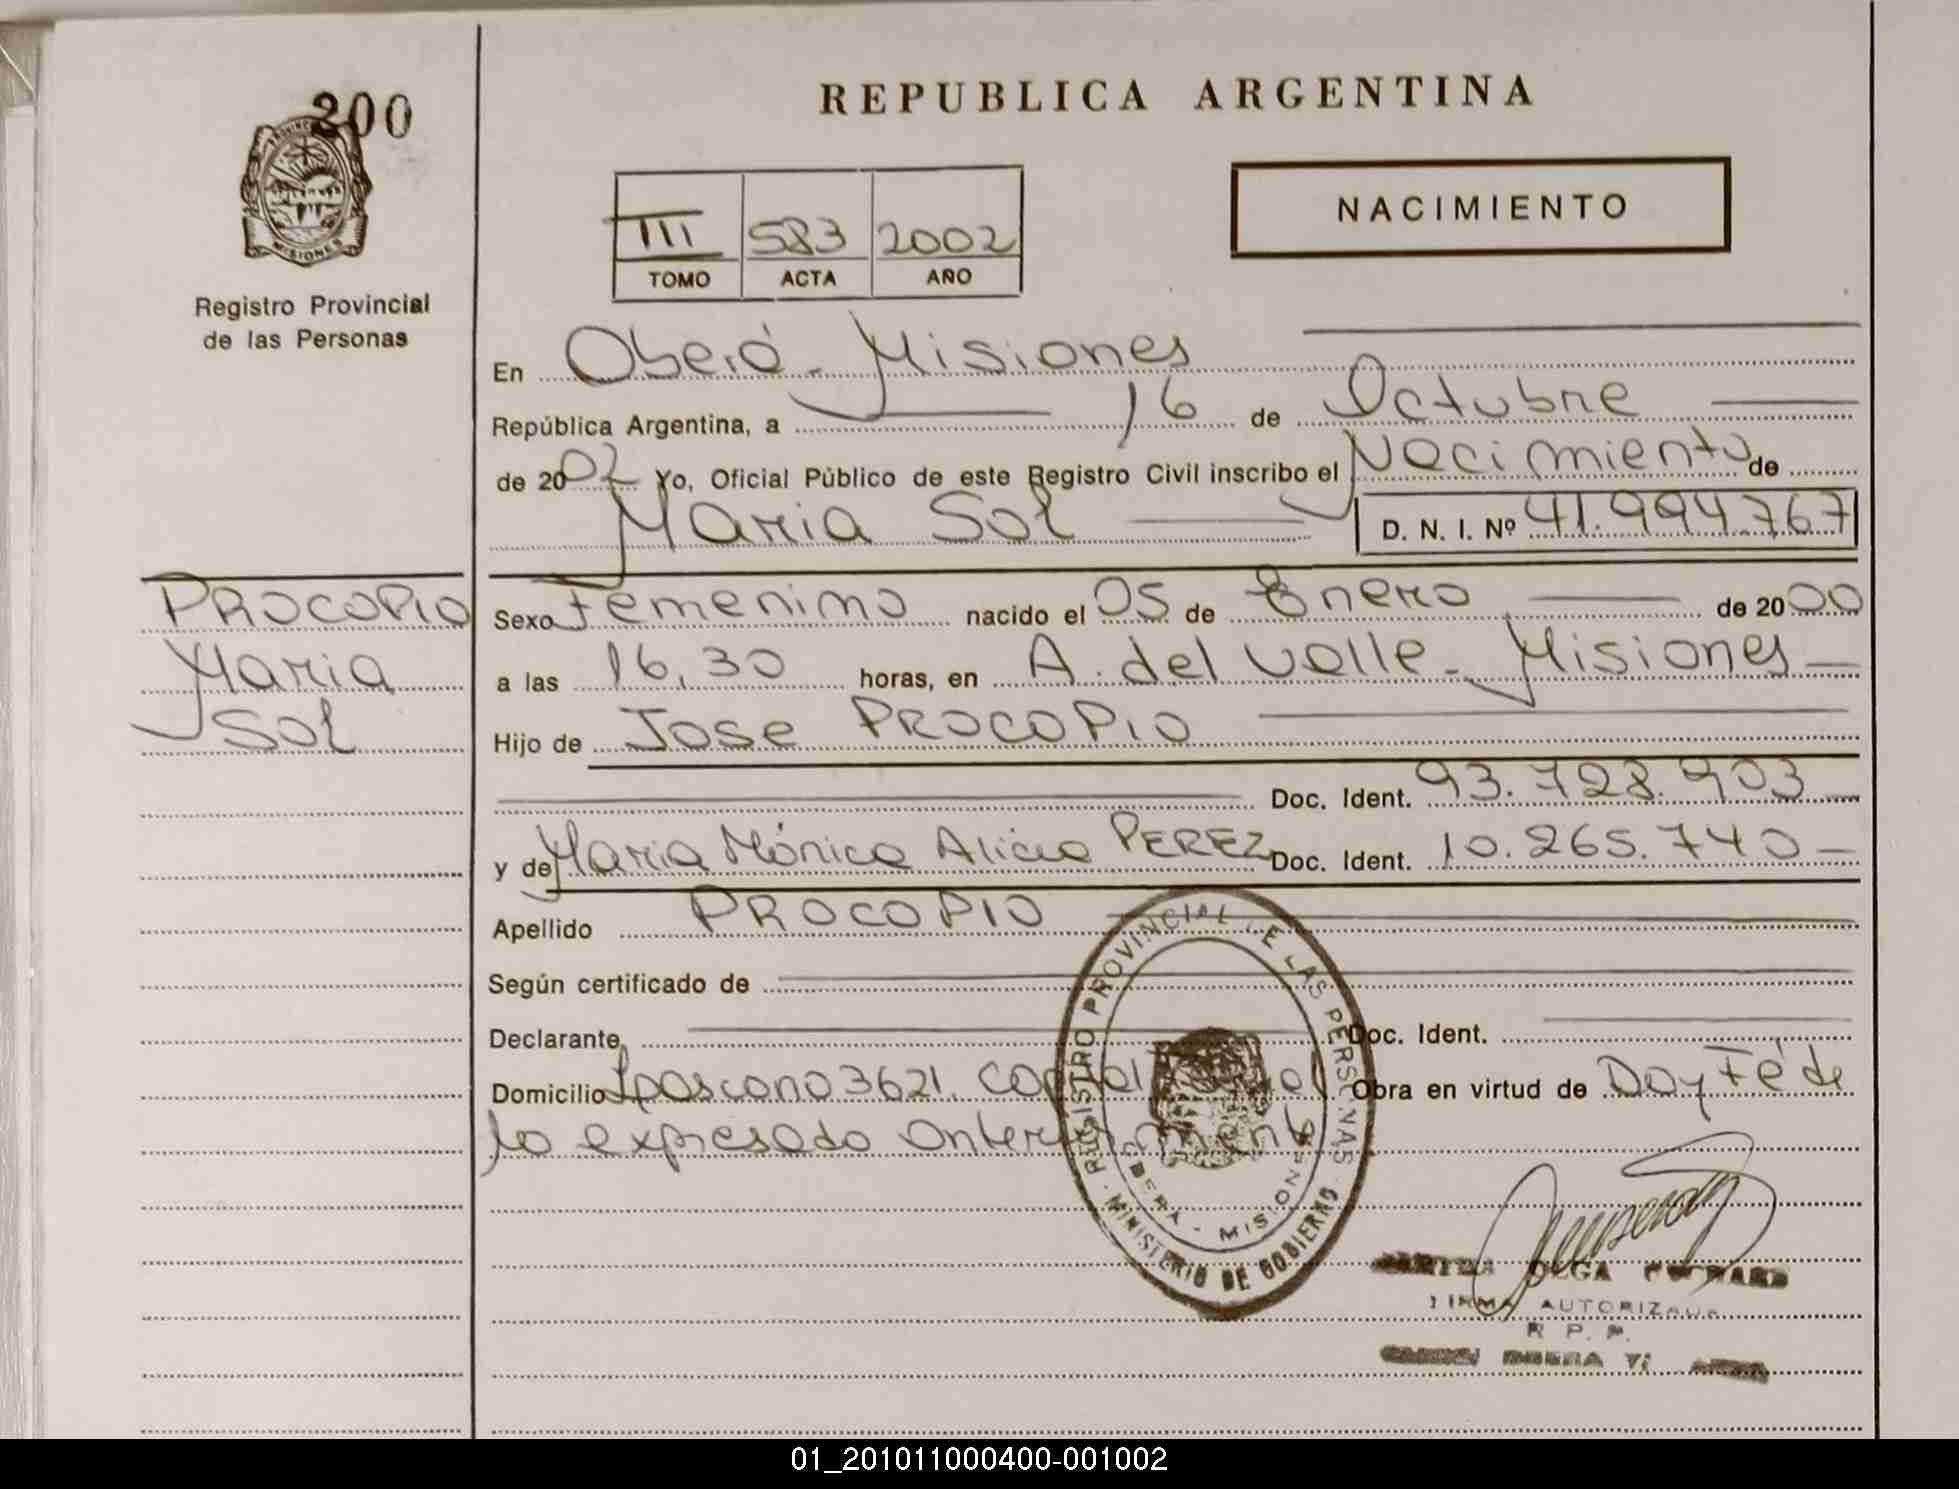 200
PROVINCIA
MISIONES
Registro Provincial
de las Personas
REPUBLICA ARGENTINA
NACIMIENTO
III 583 2002
TOMO ACTA AÑO
En Oberá - Misiones
República Argentina, a 16 de Octubre
de 2002 Yo, Oficial Público de este Registro Civil inscribo el Nacimiento de
Maria Sol D. N. I. Nº 41.994.767
PROCOPIO
Maria
Sol
Sexo Femenino nacido el 05 de Enero de 2000
a las 16,30 horas, en A. del Valle - Misiones
Hijo de Jose PROCOPIO
Doc. Ident. 93.728.903
y de Maria Mónica Alicia PEREZ Doc. Ident. 10.265.740
Apellido PROCOPIO
Según certificado de
Declarante Doc. Ident.
Domicilio 3621. Obra en virtud de Doy Fé de
lo expresado anteriormente
REGISTRO PROVINCIAL DE LAS PERSONAS
MINISTERIO DE GOBIERNO
OBERA - MISIONES
OLGA
FIRMA AUTORIZADA
R. P. P.
01_201011000400-001002